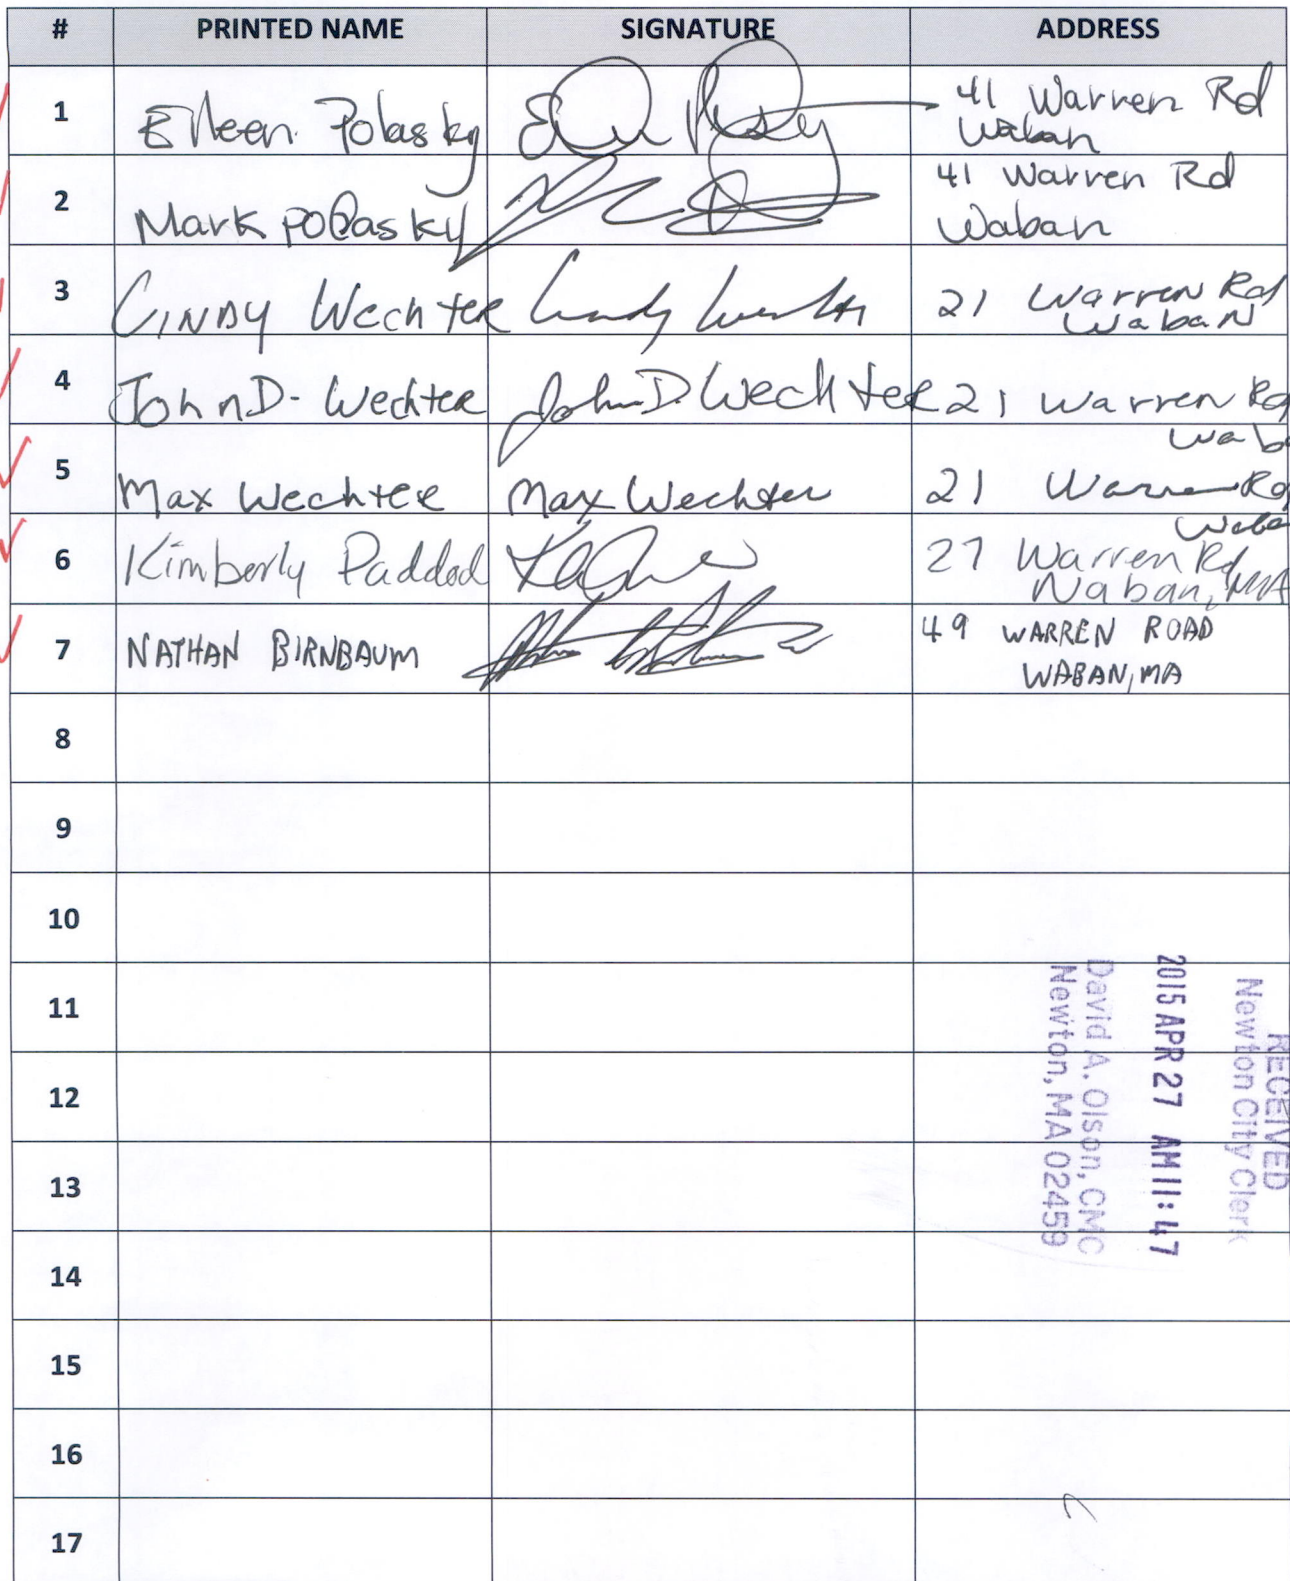 # PRINTED NAME SIGNATURE ADDRESS
1 Eileen Polasky 41 Warren Rd
Waban
2 Mark Polasky 41 Warren Rd
Waban
3 CINDY Wechter Cindy Wechter 21 Warren Rd
Waban
4 John D. Wechter John D. Wechter 21 Warren Rd
Wab
5 Max Wechter Max Wechter 21 Warren Rd
Waba
6 Kimberly Paddod 27 Warren Rd
Waban, MA
7 NATHAN BIRNBAUM 49 WARREN ROAD
WABAN, MA
8
9
10
11
12
13
14
15
16
17
RECEIVED
Newton City Clerk
2015 APR 27 AM 11:47
David A. Olson, CMC
Newton, MA 02459